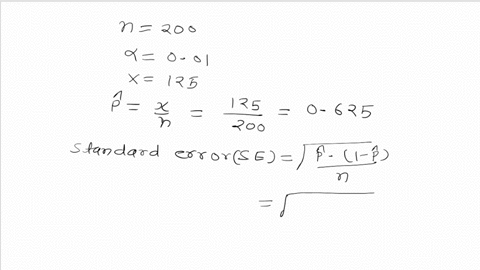 n = 200
α = 0.01
x = 125
p̂ = x/n = 125/200 = 0.625
Standard error(SE) = √(p̂ · (1-p̂)/n)
= √